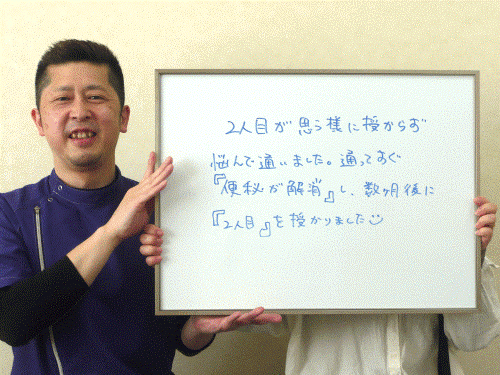 2人目が思う様に授からず
悩んで通いました。通ってすぐ
『便秘が解消』し、数ヶ月後に
『2人目』を授かりました